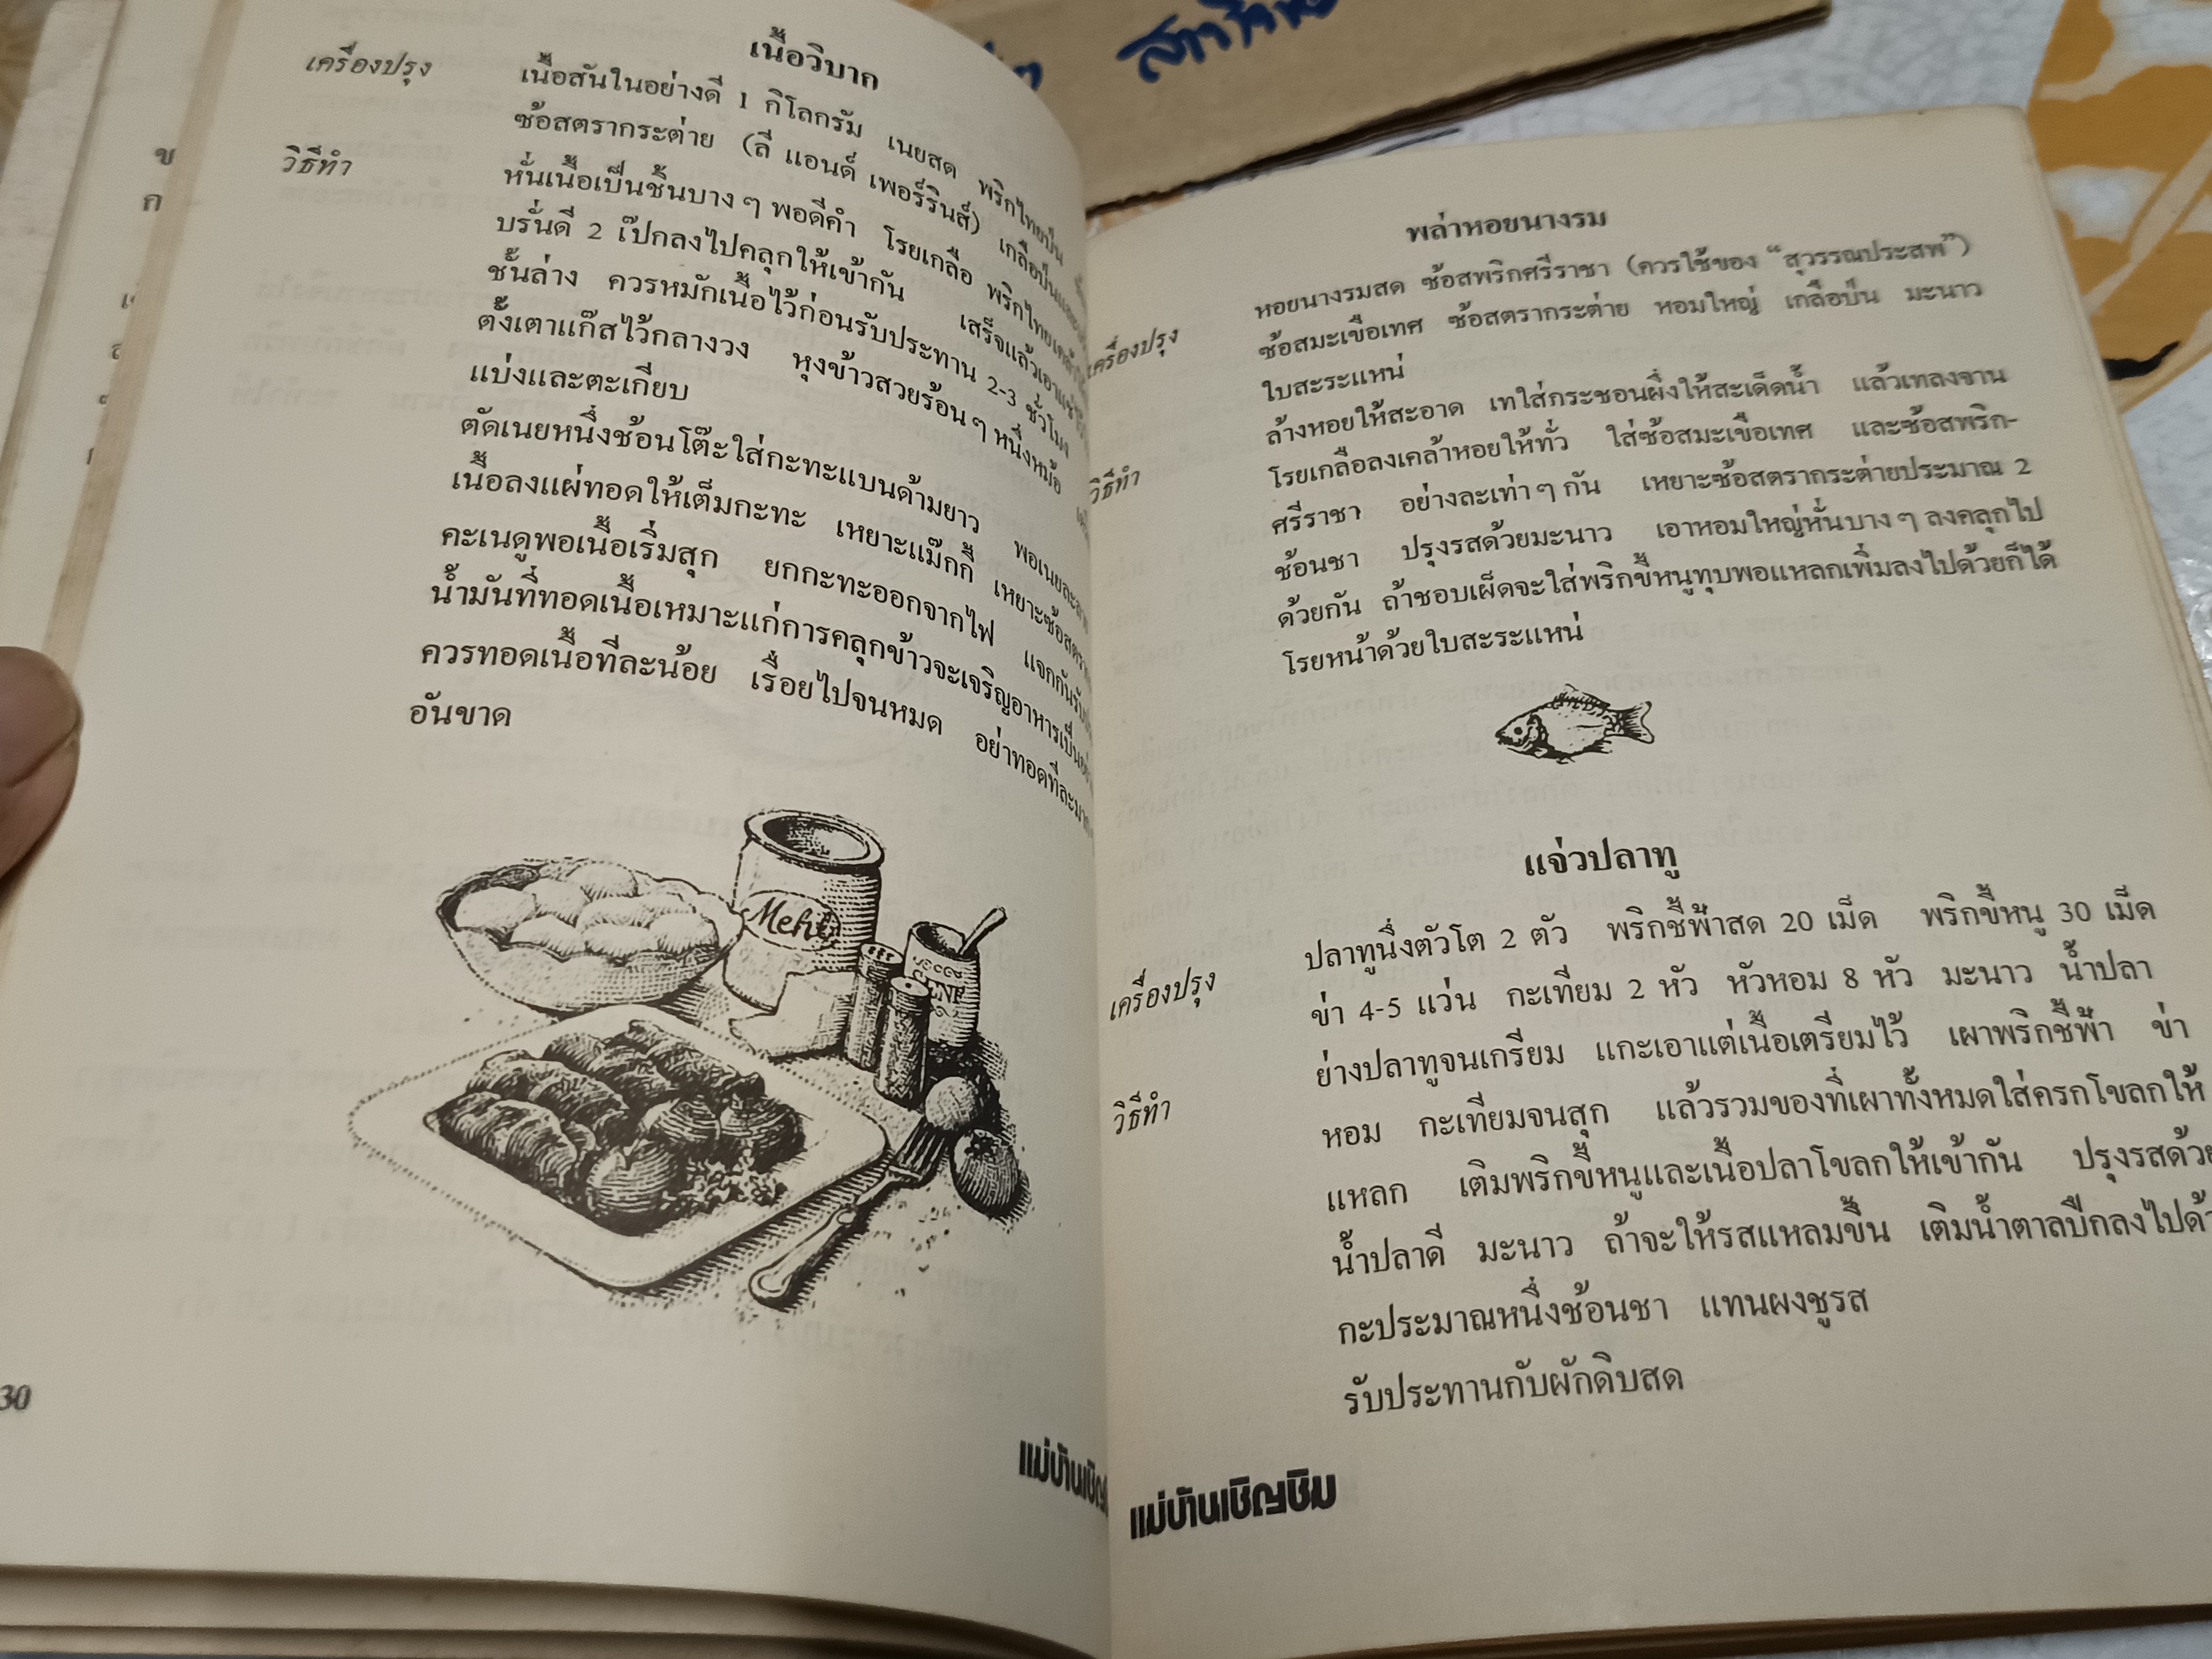 สาวไทย
เนื้อวิบาก
เครื่องปรุง
เนื้อสันในอย่างดี 1 กิโลกรัม เนยสด พริกไทยป่น
ซ้อสตรากระต่าย (ลี แอนด์ เพอร์รินส์) เกลือป่น
วิธีทำ
หั่นเนื้อเป็นชิ้นบาง ๆ พอดีคำ โรยเกลือ พริกไทย
บรั่นดี 2 เป๊กลงไปคลุกให้เข้ากัน เสร็จแล้วเอา
ชั้นล่าง ควรหมักเนื้อไว้ก่อนรับประทาน 2-3 ชั่วโมง
ตั้งเตาแก๊สไว้กลางวง หุงข้าวสวยร้อน ๆ หนึ่งหม้อ
แบ่งและตะเกียบ
ตัดเนยหนึ่งช้อนโต๊ะใส่กะทะแบนด้ามยาว พอเนยละลาย
เนื้อลงแผ่ทอดให้เต็มกะทะ เหยาะแม๊กกี้ เหยาะซ้อสตรา
คะเนดูพอเนื้อเริ่มสุก ยกกะทะออกจากไฟ แจกกัน
น้ำมันที่ทอดเนื้อเหมาะแก่การคลุกข้าวจะเจริญอาหารเป็น
ควรทอดเนื้อทีละน้อย เรื่อยไปจนหมด อย่าทอดทีละมาก
อันขาด
30
แม่บ้านเชิญ
พล่าหอยนางรม
เครื่องปรุง
หอยนางรมสด ซ้อสพริกศรีราชา (ควรใช้ของ “สุวรรณประสพ”)
ซ้อสมะเขือเทศ ซ้อสตรากระต่าย หอมใหญ่ เกลือป่น มะนาว
ใบสะระแหน่
วิธีทำ
ล้างหอยให้สะอาด เทใส่กระชอนผึ่งให้สะเด็ดน้ำ แล้วเทลงจาน
โรยเกลือลงเคล้าหอยให้ทั่ว ใส่ซ้อสมะเขือเทศ และซ้อสพริก-
ศรีราชา อย่างละเท่า ๆ กัน เหยาะซ้อสตรากระต่ายประมาณ 2
ช้อนชา ปรุงรสด้วยมะนาว เอาหอมใหญ่หั่นบาง ๆ ลงคลุกไป
ด้วยกัน ถ้าชอบเผ็ดจะใส่พริกขี้หนูทุบพอแหลกเพิ่มลงไปด้วยก็ได้
โรยหน้าด้วยใบสะระแหน่
แจ่วปลาทู
เครื่องปรุง
ปลาทูนึ่งตัวโต 2 ตัว พริกชี้ฟ้าสด 20 เม็ด พริกขี้หนู 30 เม็ด
ข่า 4-5 แว่น กะเทียม 2 หัว หัวหอม 8 หัว มะนาว น้ำปลา
วิธีทำ
ย่างปลาทูจนเกรียม แกะเอาแต่เนื้อเตรียมไว้ เผาพริกชี้ฟ้า ข่า
หอม กะเทียมจนสุก แล้วรวมของที่เผาทั้งหมดใส่ครกโขลกให้
แหลก เติมพริกขี้หนูและเนื้อปลาโขลกให้เข้ากัน ปรุงรสด้วย
น้ำปลาดี มะนาว ถ้าจะให้รสแหลมขึ้น เติมน้ำตาลปึกลงไปด้ว
กะประมาณหนึ่งช้อนชา แทนผงชูรส
รับประทานกับผักดิบสด
แม่บ้านเชิญชิม